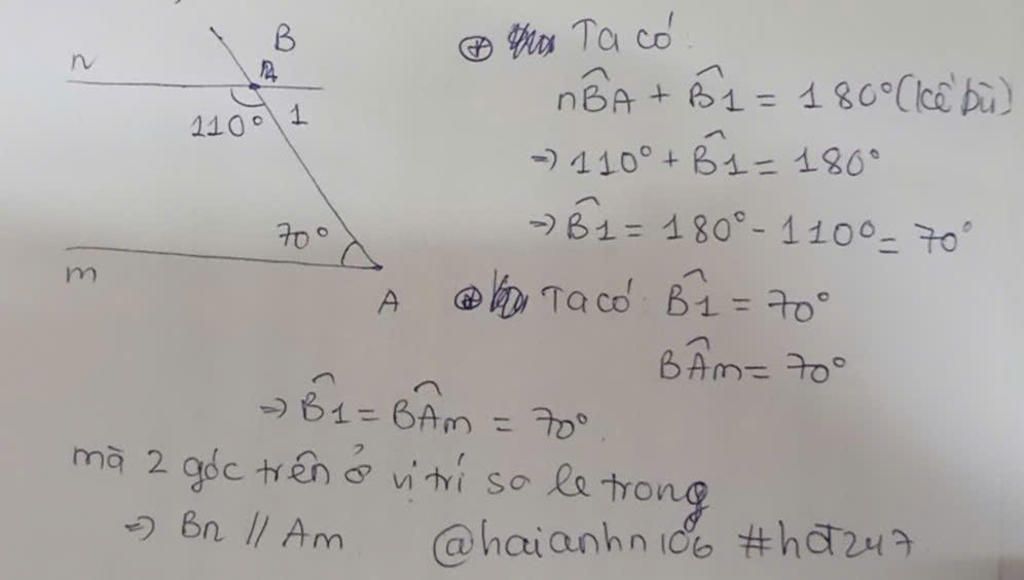 n
B
110° 1
70°
m
A
⊕ Ta có:
nB̂A + B̂1 = 180° (kề bù)
⇒ 110° + B̂1 = 180°
⇒ B̂1 = 180° - 110° = 70°
⊕ Ta có: B̂1 = 70°
BÂm = 70°
⇒ B̂1 = BÂm = 70°.
mà 2 góc trên ở vị trí so le trong
⇒ Bn // Am @haianhn106 #hđ247